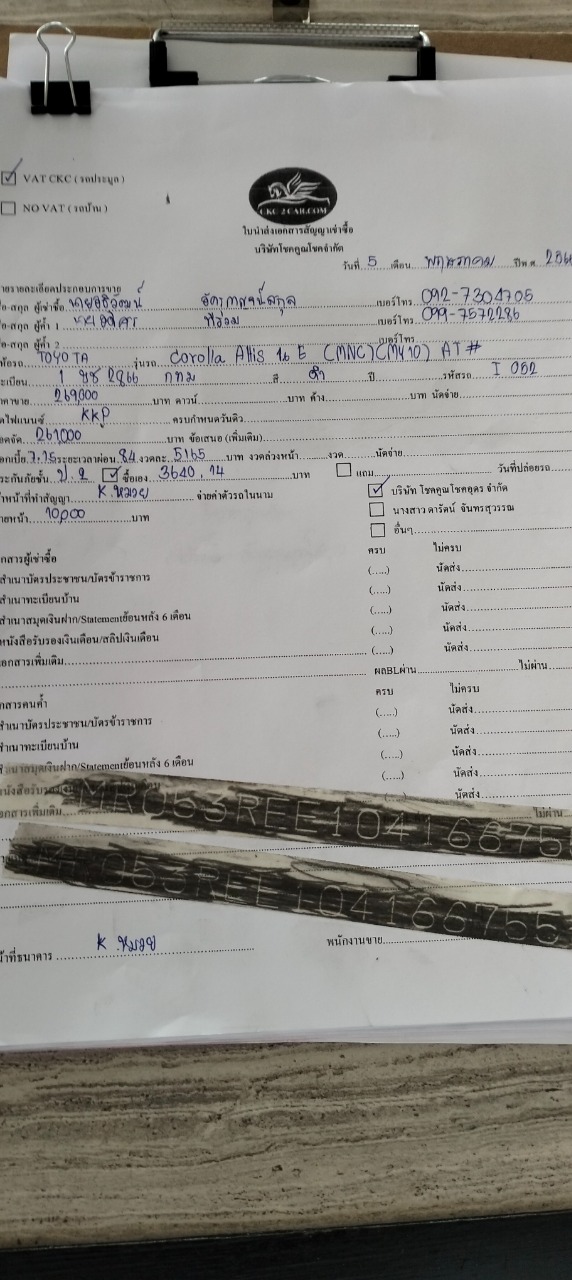 VAT CKC ( รถประมูล )
NO VAT ( รถบ้าน )
CKC 2 CAR.COM
ใบนำส่งเอกสารสัญญาเช่าซื้อ
บริษัทโชคคูณโชคจำกัด
วันที่ 5 เดือน พฤษภาคม ปีพ.ศ.
รายละเอียดประกอบการขาย
ผู้เช่าซื้อ เบอร์โทร 092-7304705
ผู้ค้ำ 1 เบอร์โทร 099-7572286
ผู้ค้ำ 2 เบอร์โทร
TOYOTA รุ่นรถ Corolla Altis 1.6 E (MNC)(MY10) AT #
1 ขช 2866 กทม สี ดำ ปี รหัสรถ I 052
269,000 บาท ดาวน์ บาท ค้าง บาท นัดจ่าย
KKP ครบกำหนดวันดิว
261,000 บาท ข้อเสนอ (เพิ่มเติม)
7.15 ระยะเวลาผ่อน 84 งวดละ 5165 บาท งวดล่วงหน้า งวด นัดจ่าย
ประกันภัยชั้น ป.2 ซื้อเอง 3640.14 บาท แถม วันที่ปล่อยรถ
หน้าที่ทำสัญญา K.หมวย จ่ายค่าตัวรถในนาม บริษัท โชคคูณโชคอุดร จำกัด
10,000 บาท นางสาว ดารัตน์ จันทรสุวรรณ
อื่นๆ
เอกสารผู้เช่าซื้อ ครบ ไม่ครบ
สำเนาบัตรประชาชน/บัตรข้าราชการ (.....) นัดส่ง
สำเนาทะเบียนบ้าน (.....) นัดส่ง
สำเนาสมุดเงินฝาก/Statementย้อนหลัง 6 เดือน (.....) นัดส่ง
หนังสือรับรองเงินเดือน/สลิปเงินเดือน (.....) นัดส่ง
เอกสารเพิ่มเติม (.....) นัดส่ง
ผลBLผ่าน ไม่ผ่าน
เอกสารคนค้ำ ครบ ไม่ครบ
สำเนาบัตรประชาชน/บัตรข้าราชการ (.....) นัดส่ง
สำเนาทะเบียนบ้าน (.....) นัดส่ง
สำเนาสมุดเงินฝาก/Statementย้อนหลัง 6 เดือน (.....) นัดส่ง
หนังสือรับรอง (.....) นัดส่ง
เอกสารเพิ่มเติม ไม่ผ่าน
MR053REE10416675
MR053REE104166755
เจ้าหน้าที่ธนาคาร K.หมวย พนักงานขาย